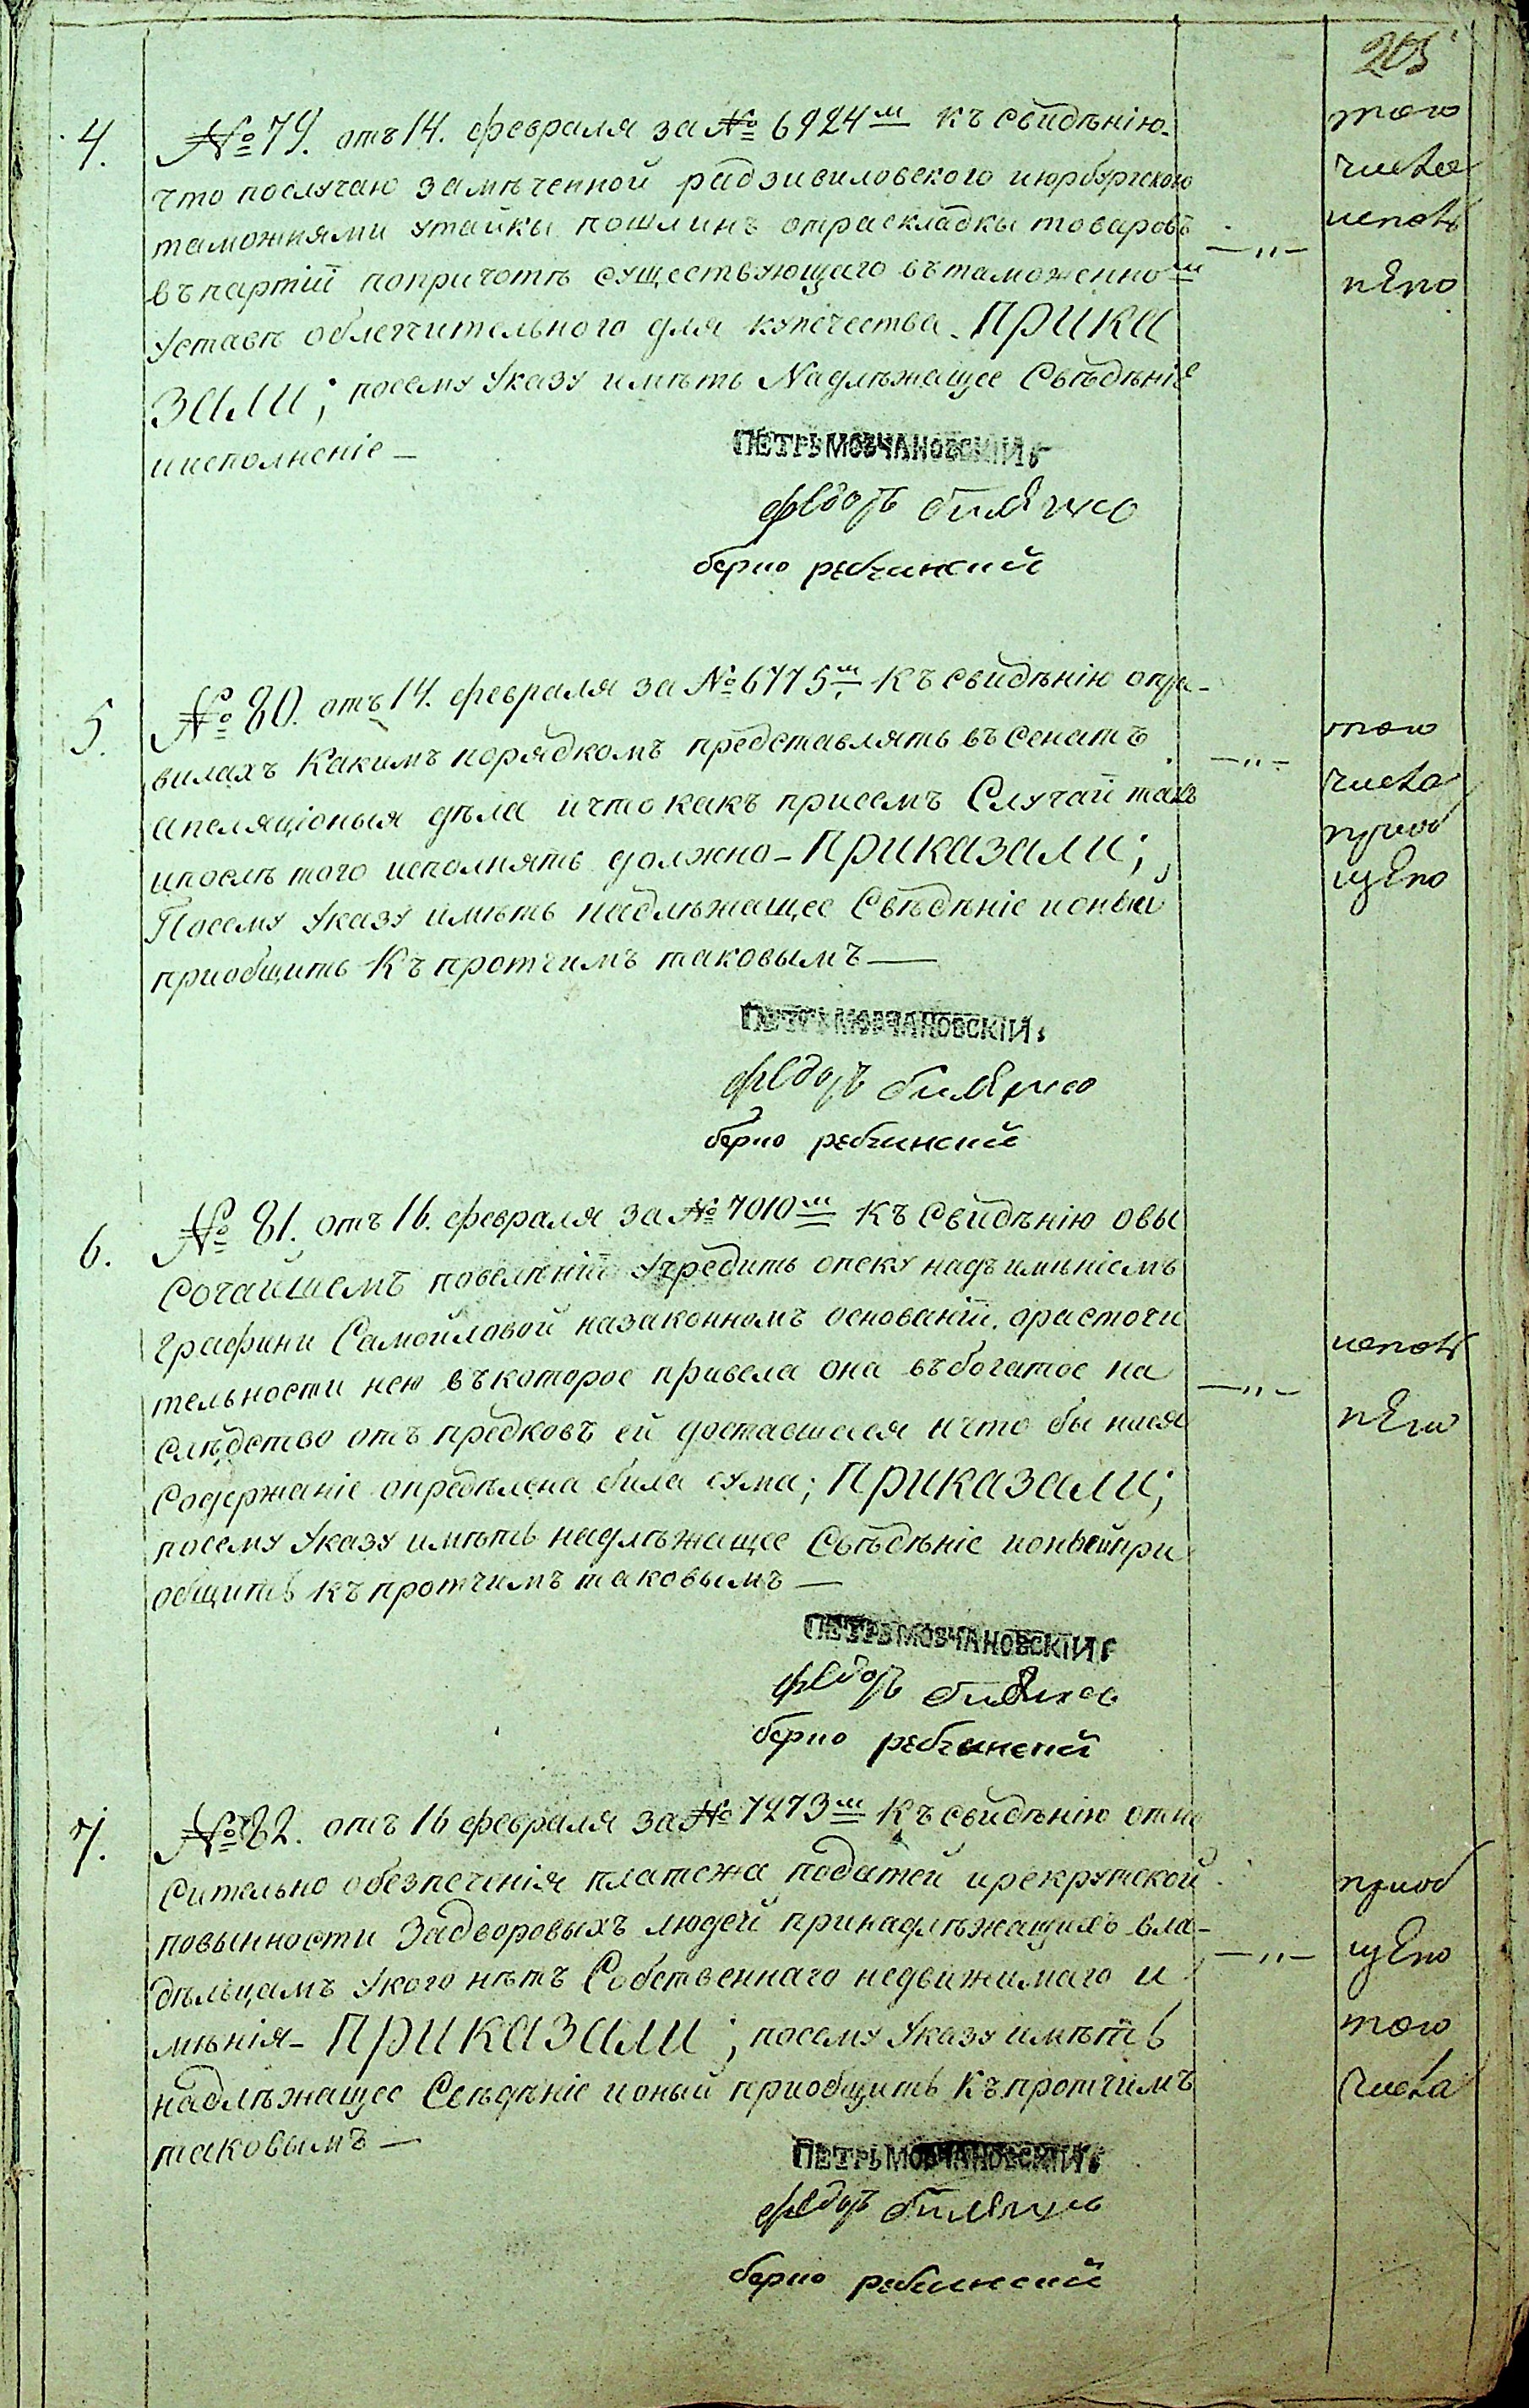 205
4.
№ 79. отъ 14. февраля за № 6924м къ свидѣнію
что послучаю замѣченной радзивиловского июрбургского
таможнями утайки пошлинъ отраскладки товаровъ
въ партіи попричотѣ существующаго въ таможенном
уставѣ облегчительного для купечества. Прика
зали; посему указу имѣть надлѣжащее свѣдѣніе
и исполненіе —
Того
числа
исполь
нЕно
ПЕТРЪ МОВЧАНОВСКІЙ
Федоръ
5.
№ 80. отъ 14. февраля за № 6775м къ свидѣнію опра-
вилахъ какимъ порядкомъ представлять въ сенатъ
апеляціоныя дѣла ичто какъ присемъ случаи такъ
ипослѣ того исполнять должно - Приказали;
Посему указу имѣть надлѣжащее свѣдѣніе ионый
приобщить къ протчимъ таковымъ —
того
числа
приоб
щЕно
ПЕТРЪ МОВЧАНОВСКІЙ
Федоръ
6.
№ 81. отъ 16. февраля за № 7010м къ свидѣнію овы
сочайшемъ повелѣніи учредить опеку надъ имѣніемъ
графини Самойловой назаконномъ основаніи. орасточи
тельности нею въ которое привела она въ богатое на
слѣдство отъ предковъ ей доставшееся и что бы нася
содержаніе опредѣлена была сума; Приказали;
посему указу имѣть надлѣжащее свѣдѣніе ионый при
общить къ протчимъ таковымъ —
исполь
нЕно
ПЕТРЪ МОВЧАНОВСКІЙ
Федоръ
7.
№ 82. отъ 16 февраля за № 7273м къ свидѣнію отно
сительно обезпеченія платежа податей ирекрутской
повынности задворовыхъ людей принадлѣжащихъ вла-
дѣльцамъ укого нѣтъ собственнаго недвижимаго и
мѣнія - Приказали; посему указу имѣть
надлѣжащее свѣдѣніе ионый приобщить къ протчимъ
таковымъ —
приоб
щЕно
того
числа
ПЕТРЪ МОВЧАНОВСКІЙ
Федоръ